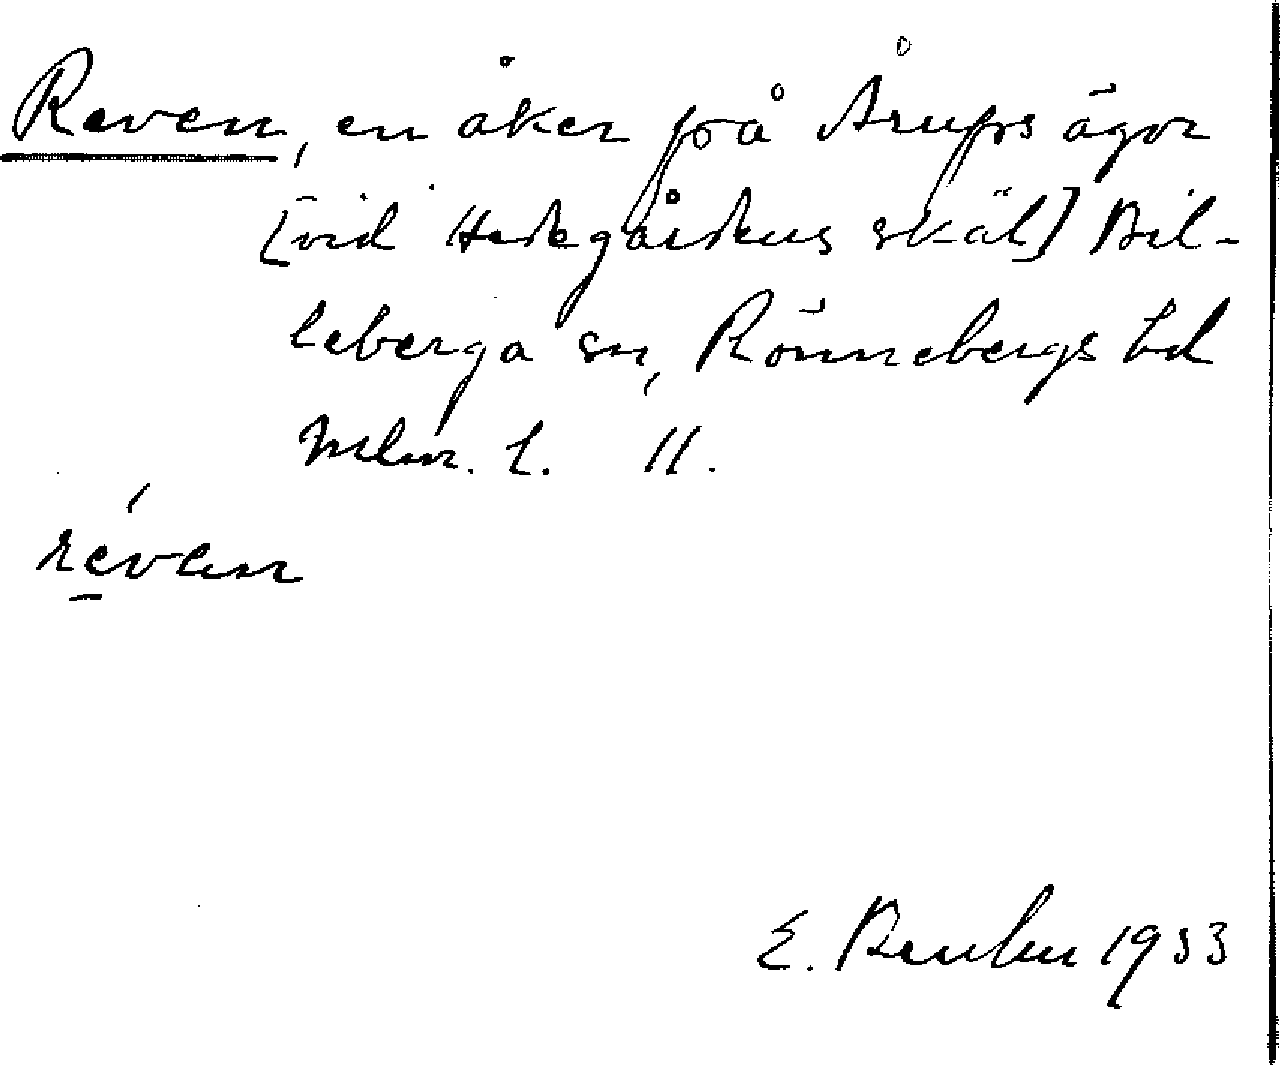 Reven, en åker på Årups ägor
[vid Hedegårdens skäl] Bil-
leberga sn, Rönnebergs hd
Mlm. L. 11.
réven
E. 1933